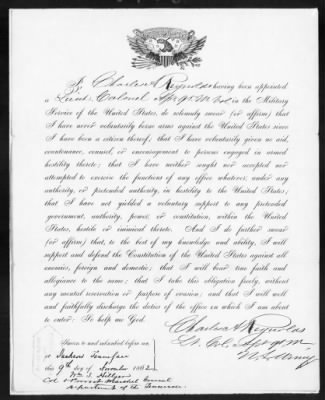 I, Charles A Reynolds having been appointed
a Lieut. Colonel in the Military
Service of the United States, do solemnly swear (or affirm) that
I have never voluntarily borne arms against the United States since
I have been a citizen thereof; that I have voluntarily given no aid,
countenance, counsel, or encouragement to persons engaged in armed
hostility thereto; that I have neither sought nor accepted nor
attempted to exercise the functions of any office whatever, under any
authority, or pretended authority, in hostility to the United States;
that I have not yielded a voluntary support to any pretended
government, authority, power, or constitution, within the United
States, hostile or inimical thereto. And I do further swear
(or affirm) that, to the best of my knowledge and ability, I will
support and defend the Constitution of the United States against all
enemies, foreign and domestic; that I will bear true faith and
allegiance to the same; that I take this obligation freely, without
any mental reservation or purpose of evasion; and that I will well
and faithfully discharge the duties of the office in which I am about
to enter: So help me God.
Charles A Reynolds
Lt. Col.
U.S. Army
Sworn to and subscribed before me
at Jackson Tennessee
this 9th day of November 1862
Wm S. Hillyer
Col & Provost Marshal General
Department of the Tennessee